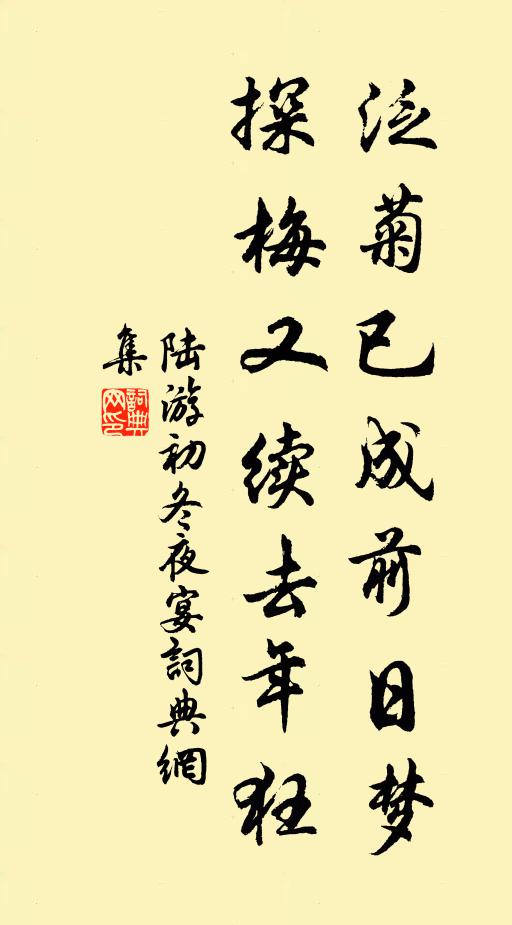 泛菊已成前日梦
探梅又续去年狂
陆游初冬夜宴詞典網
集
詞典
网印